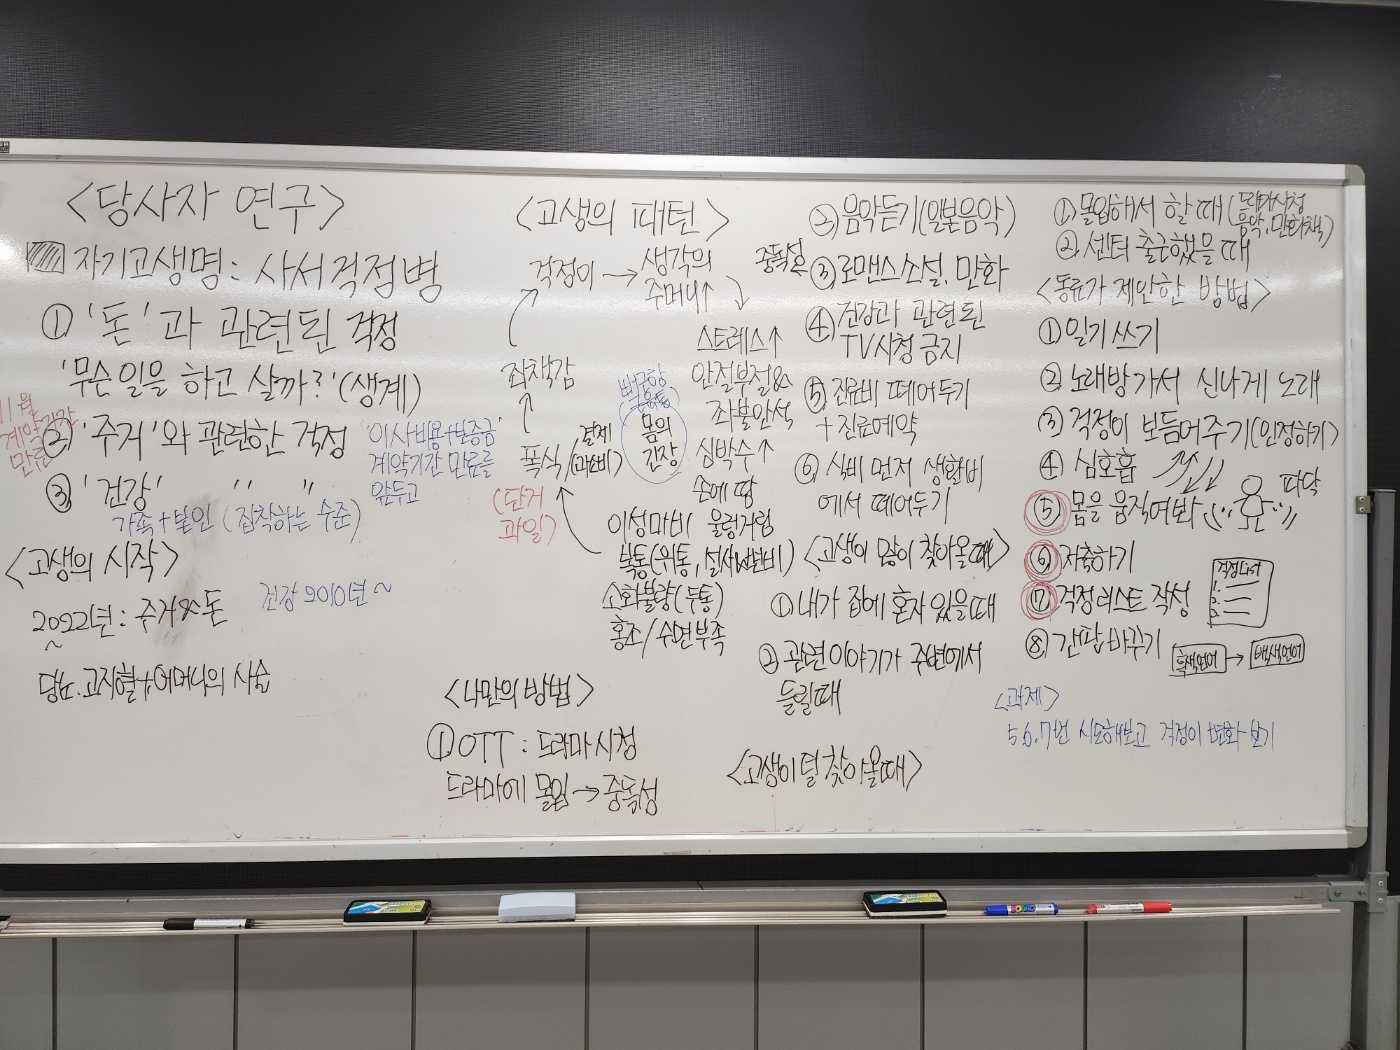 <당사자 연구>
자기고생명: 사서걱정병
① '돈'과 관련된 걱정
'무슨일을 하고 살까?'(생계)
11월
계약기간
만료
② '주거'와 관련한 걱정
'이사비용+보증금'
계약기간 만료를
앞두고
③ '건강' " "
가족+본인 (집착하는 수준)
<고생의 시작>
2022년: 주거&돈
~
건강 2010년~
당뇨.고지혈+어머니의 사술
<고생의 패턴>
걱정이 → 생각의
주머니↑
스트레스↑
안절부절&
좌불안석
심박수↑
손에 땀
이성마비 울렁거림
복통(위통, 설사&변비)
소화불량(두통)
홍조/수면부족
몸의
긴장
죄책감
폭식/
결제
(과소비)
(단거
과일)
<나만의 방법>
① OTT: 드라마시청
드라마에 몰입→중독성
② 음악듣기(일본음악)
중독성
③ 로맨스소설. 만화
④ 건강과 관련된
TV시청 금지
⑤ 진료비 떼어두기
+진료예약
⑥ 식비 먼저 생활비
에서 떼어두기
<고생이 많이 찾아올때>
① 내가 집에 혼자 있을때
② 관련이야기가 주변에서
들릴때
<고생이 덜 찾아올때>
① 몰입해서 할 때(드라마시청
음악, 만화책)
② 센터 출근했을 때
<동료가 제안한 방법>
① 일기 쓰기
② 노래방가서 신나게 노래
③ 걱정이 보듬어주기(인정하기)
④ 심호흡
⑤ 몸을 움직여봐
파닥
⑥ 저축하기
⑦ 걱정리스트 작성
걱정도서
1.
2.
3.
⑧ 간판바꾸기
흑색언어 → 백색언어
<과제>
5.6.7번 시도해보고 걱정이 변화 보기
BOARD